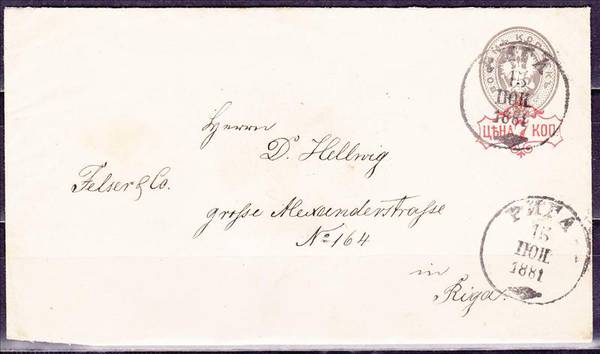 РИГА
1881
ЦѢНА 7 КОП.
Herrn
D. Hellwig
Felser & Co.
grosse Alexanderstrasse
No 164
in
Riga.
РИГА
1881